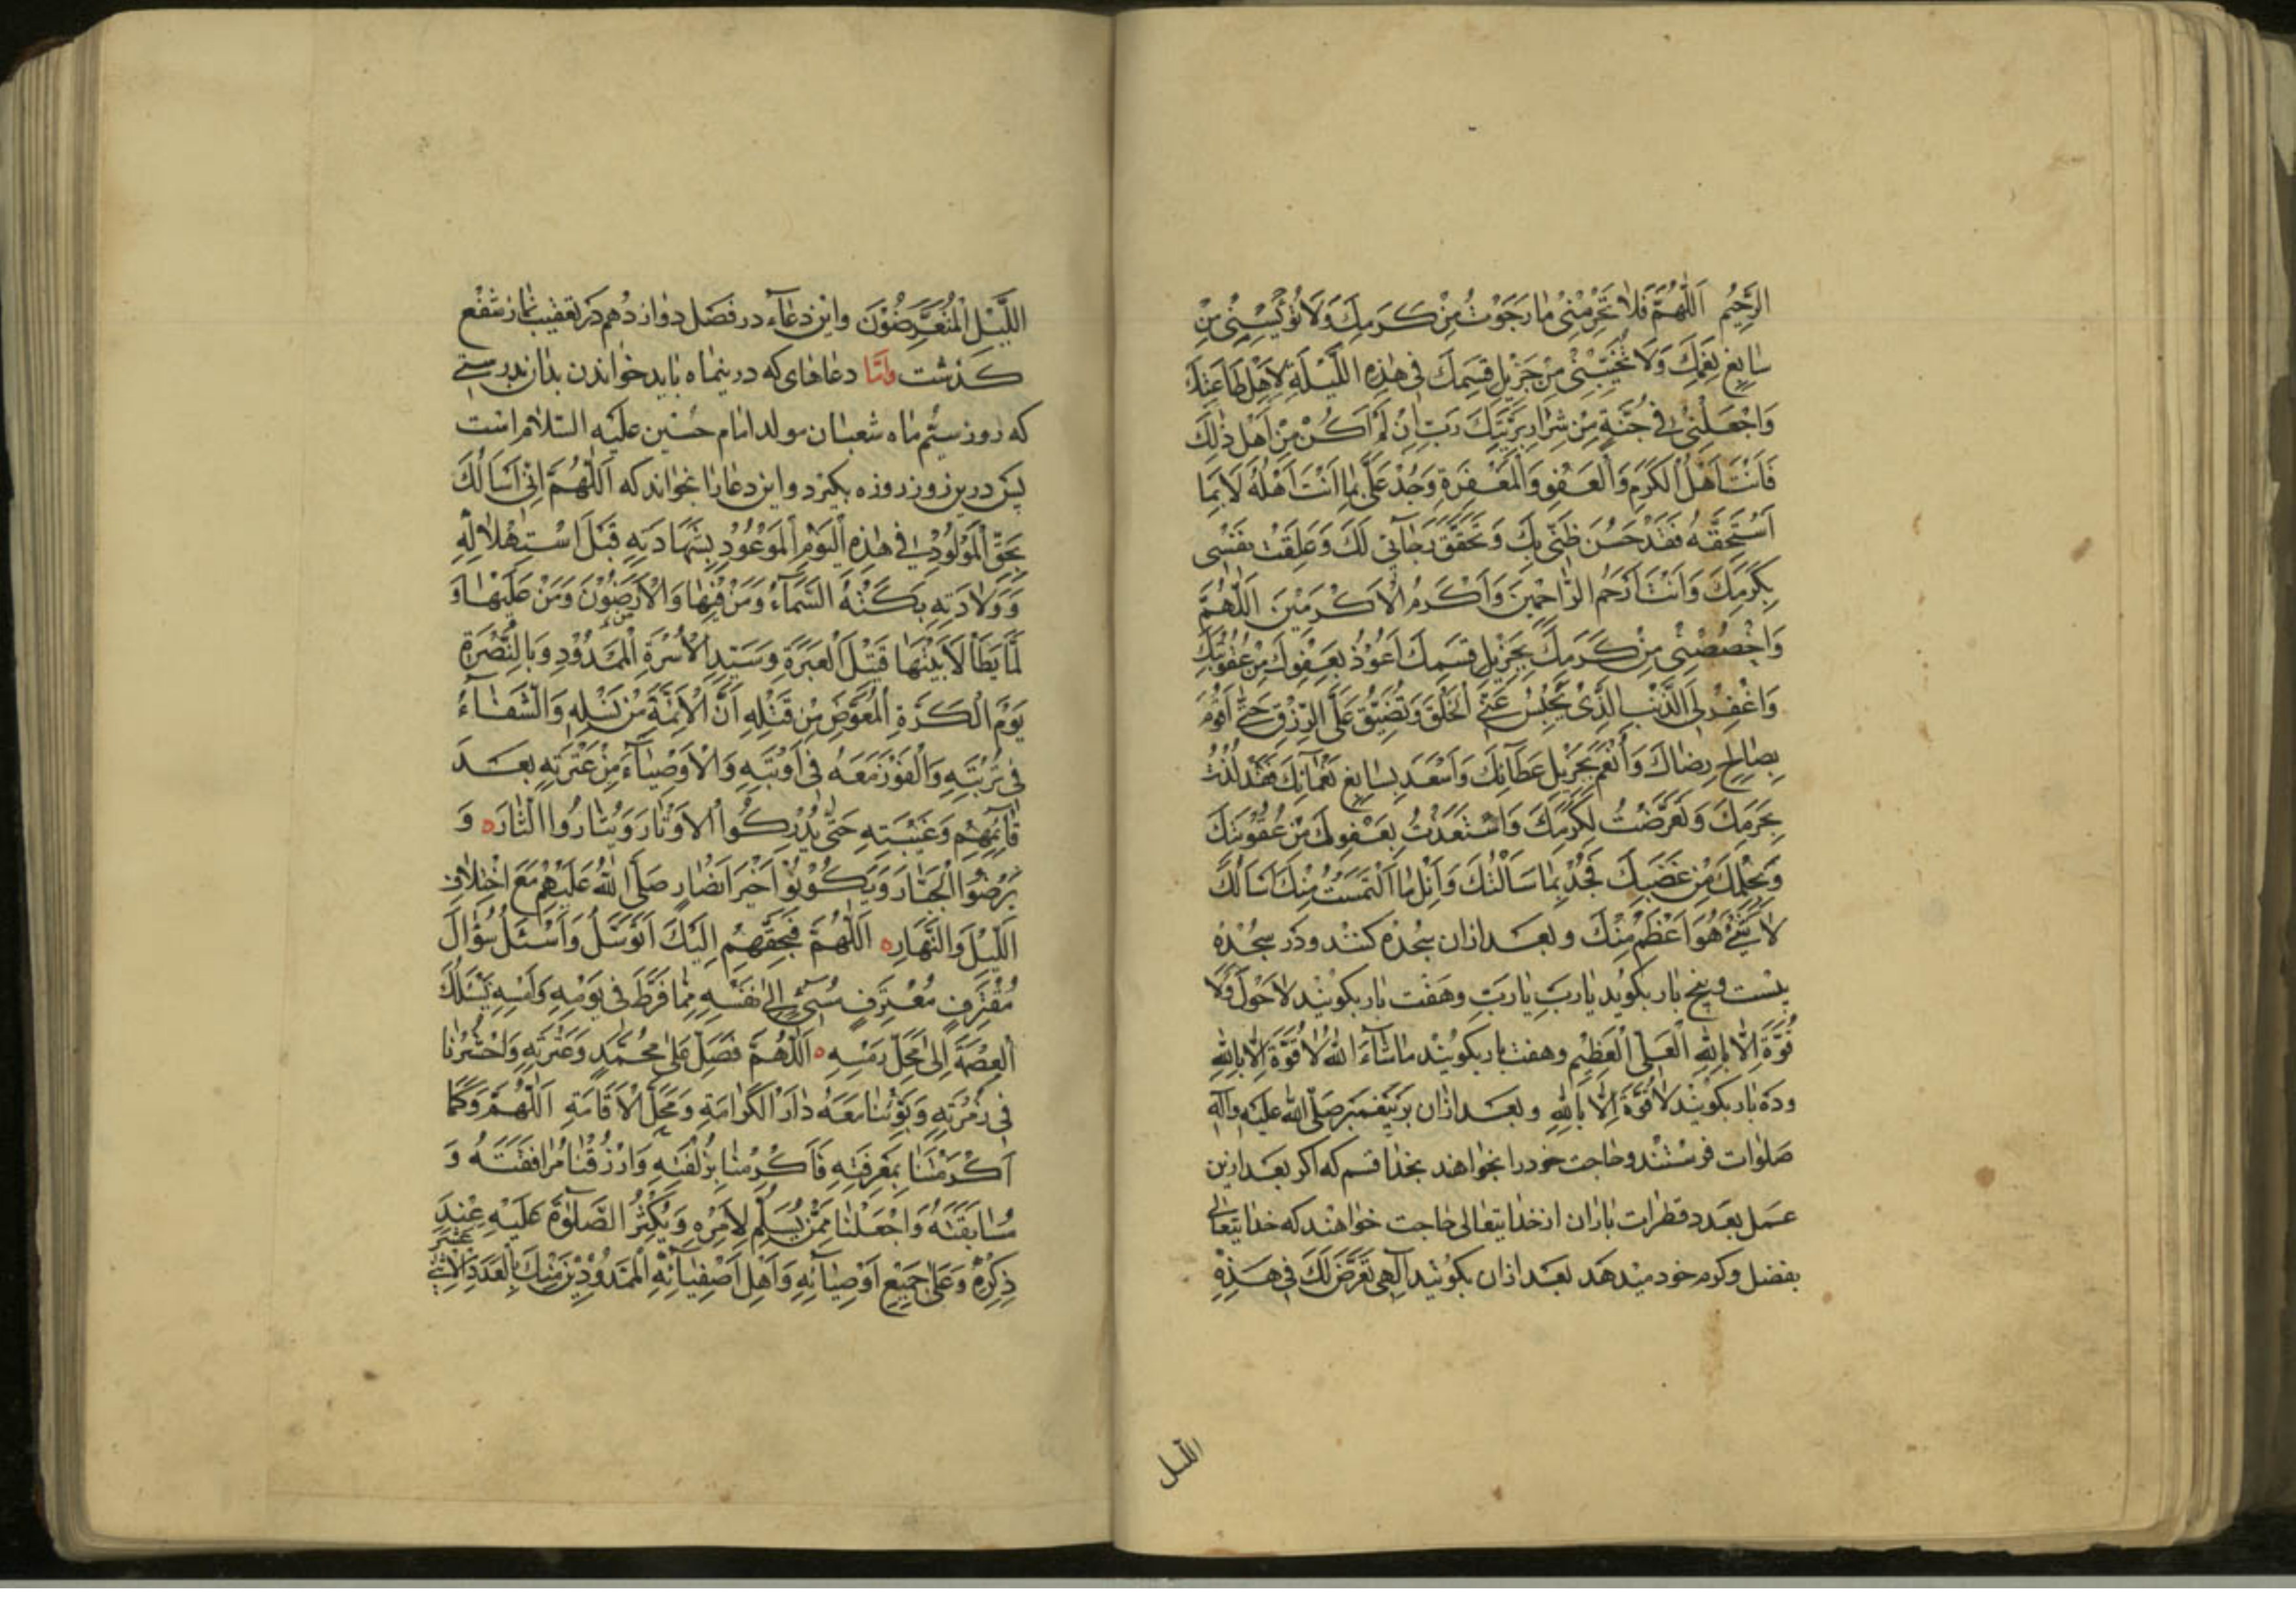 الرَّحِيمُ اَللّٰهُمَّ فَلَا تَحْرِمْنِي مَا رَجَوْتُ مِنْ كَرَمِكَ وَلَا تُؤْيِسْنِي مِنْ
سَابِغِ نِعَمِكَ وَلَا تُخَيِّبْنِي مِنْ جَزِيلِ قِسَمِكَ فِي هٰذِهِ اللَّيْلَةِ لِاَهْلِ طَاعَتِكَ
وَاجْعَلْنِي فِي جُنَّةٍ مِنْ شِرَارِ بَرِيَّتِكَ رَبِّ اِنْ لَمْ اَكُنْ مِنْ اَهْلِ ذٰلِكَ
فَاَنْتَ اَهْلُ الْكَرَمِ وَالْعَفْوِ وَالْمَغْفِرَةِ وَجُدْ عَلَيَّ بِمَا اَنْتَ اَهْلُهُ لَا بِمَا
اَسْتَحِقُّهُ فَقَدْ حَسُنَ ظَنِّي بِكَ وَتَحَقَّقَ رَجَائِي لَكَ وَعَلِقَتْ نَفْسِي
بِكَرَمِكَ وَاَنْتَ اَرْحَمُ الرَّاحِمِينَ وَاَكْرَمُ الْاَكْرَمِينَ اَللّٰهُمَّ
وَاخْصُصْنِي مِنْ كَرَمِكَ بِجَزِيلِ قِسَمِكَ اَعُوذُ بِعَفْوِكَ مِنْ عُقُوبَتِكَ
وَاغْفِرْ لِيَ الذَّنْبَ الَّذِي يَحْبِسُ عَنِّي الْخُلُقَ وَيُضَيِّقُ عَلَيَّ الرِّزْقَ حَتّٰى اَقُومَ
بِصَالِحِ رِضَاكَ وَاَنْعَمَ بِجَزِيلِ عَطَائِكَ وَاَسْعَدَ بِسَابِغِ نَعْمَائِكَ فَقَدْ لُذْتُ
بِحَرَمِكَ وَتَعَرَّضْتُ لِكَرَمِكَ وَاسْتَعَذْتُ بِعَفْوِكَ مِنْ عُقُوبَتِكَ
وَبِحِلْمِكَ مِنْ غَضَبِكَ فَجُدْ بِمَا سَاَلْتُكَ وَاَنِلْ مَا الْتَمَسْتُ مِنْكَ اَسْاَلُكَ
لَا بِشَيْءٍ هُوَ اَعْظَمُ مِنْكَ و بعد ازان سجده كنند ودر سجده
بيست وپنج بار بكويد يا ربّ يا ربّ وهفت بار بكويند لا حول ولا
قُوَّةَ اِلَّا بِاللّٰهِ الْعَلِيِّ الْعَظِيمِ وهفت بار بكويند ما شاءَ اللّٰهُ لا قُوَّةَ اِلَّا بِاللّٰهِ
وده بار بكويند لا قُوَّةَ اِلَّا بِاللّٰهِ و بعد ازان بر پيغمبر صلّى اللّٰه عليه وآله
صلوات فرستند وحاجت خود را بخواهند بخدا قسم كه اكر بعد ازين
عمل بعدد قطرات باران از خدايتعالى حاجت خواهند كه خدايتعالى
بفضل وكرم خود ميدهد بعد ازان بكويند اِلٰهِي تَعَرَّضَ لَكَ فِي هٰذِهِ
الليل
اللَّيْلِ الْمُتَعَرِّضُونَ واين دعاء در فصل دوازدهم در تعقيب نماز شفع
كذشت وامّا دعاهاى كه درينماه بايد خواندن بدان بدرستى
كه روز سيّم ماه شعبان مولد امام حسين عليه السّلام است
پس درين روز روزه بكيرد واين دعا را بخواند كه اَللّٰهُمَّ اِنِّي اَسْاَلُكَ
بِحَقِّ الْمَوْلُودِ فِي هٰذِهِ الْيَوْمِ الْمَوْعُودِ بِشَهَادَتِهِ قَبْلَ اسْتِهْلَالِهِ
وَوِلَادَتِهِ بَكَتْهُ السَّمَاءُ وَمَنْ فِيهَا وَالْاَرَضُونَ وَمَنْ عَلَيْهَا وَ
لَمَّا يَطَأْ لَابَتَيْهَا قَتِيلِ الْعَبْرَةِ وَسَيِّدِ الْاُسْرَةِ الْمَمْدُودِ وَبِالنُّصْرَةِ
يَوْمَ الْكَرَّةِ الْمُعَوَّضِ مِنْ قَتْلِهِ اَنَّ الْاَئِمَّةَ مِنْ نَسْلِهِ وَالشِّفَاءُ
فِي تُرْبَتِهِ وَالْفَوْزَ مَعَهُ فِي اَوْبَتِهِ وَالْاَوْصِيَاءَ مِنْ عِتْرَتِهِ بَعْدَ
قَائِمِهِمْ وَغَيْبَتِهِ حَتّٰى يُدْرِكُوا الْاَوْتَارَ وَيَثْارُوا الثَّارَه وَ
يُرْضُوا الْجَبَّارَ وَيَكُونُوا خَيْرَ اَنْصَارٍ صَلَّى اللّٰهُ عَلَيْهِمْ مَعَ اخْتِلَافِ
اللَّيْلِ وَالنَّهَارِه اَللّٰهُمَّ فَبِحَقِّهِمْ اِلَيْكَ اَتَوَسَّلُ وَاَسْئَلُ سُؤَالَ
مُقْتَرِفٍ مُعْتَرِفٍ مُسِيءٍ اِلٰى نَفْسِهِ مِمَّا فَرَّطَ فِي يَوْمِهِ وَاَمْسِهِ يَسْئَلُكَ
الْعِصْمَةَ اِلٰى مَحَلِّ رَمْسِهِ ه اَللّٰهُمَّ فَصَلِّ عَلٰى مُحَمَّدٍ وَعِتْرَتِهِ وَاحْشُرْنَا
فِي زُمْرَتِهِ وَبَوِّئْنَا مَعَهُ دَارَ الْكَرَامَةِ وَمَحَلَّ الْاِقَامَةِ اَللّٰهُمَّ وَكَمَا
اَكْرَمْتَنَا بِمَعْرِفَتِهِ فَاَكْرِمْنَا بِزُلْفَتِهِ وَارْزُقْنَا مُرَافَقَتَهُ وَ
سَابِقَتَهُ وَاجْعَلْنَا مِمَّنْ يُسَلِّمُ لِاَمْرِهِ وَيُكْثِرُ الصَّلٰوةَ عَلَيْهِ عِنْدَ
ذِكْرِهِ وَعَلٰى جَمِيعِ اَوْصِيَائِهِ وَاَهْلِ اَصْفِيَائِهِ الْمَمْدُودِينَ مِنْكَ بِالْعَدَدِ الْاِثْنَيْ عَشَرَ